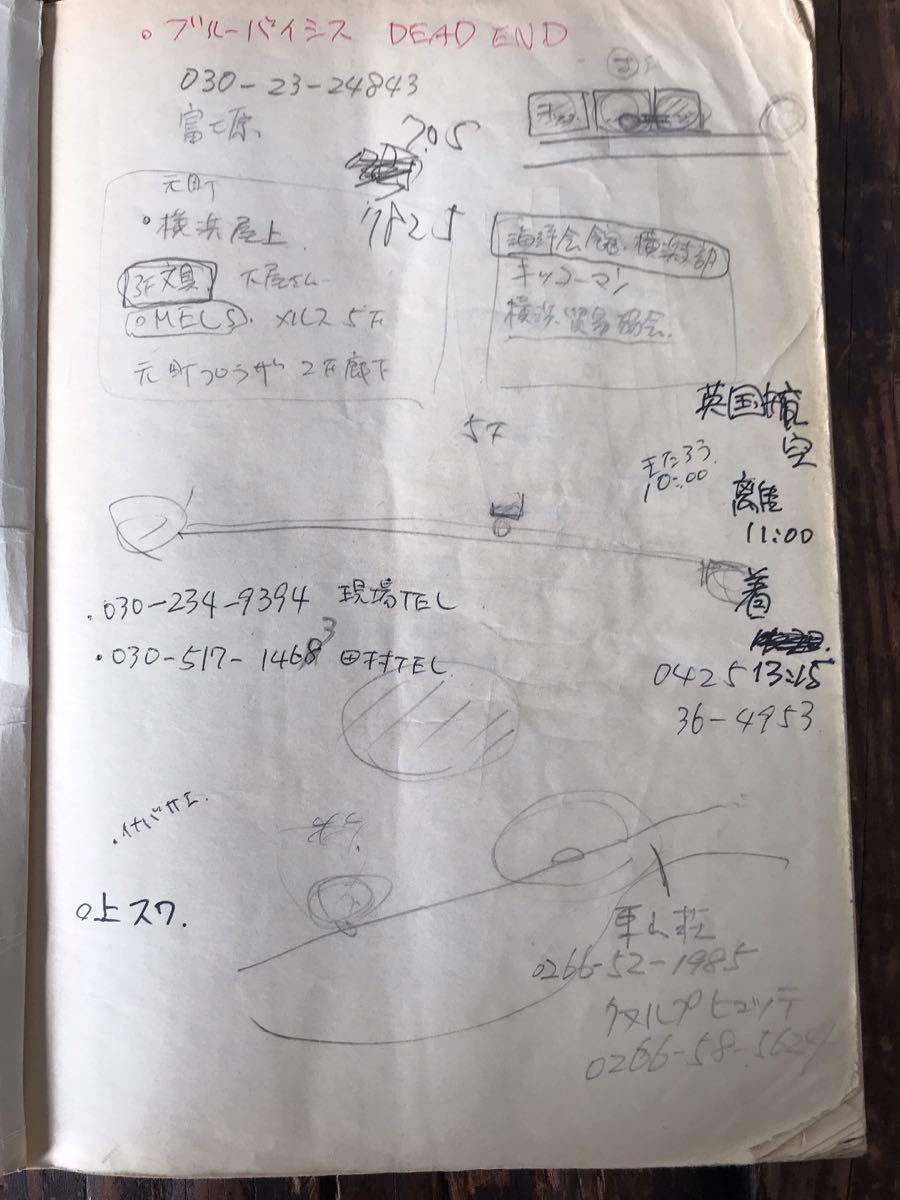 。ブルーバイミス DEAD END
030-23-24843
705
1825
元町
°横浜屋上
3F文具
○MELS. メルス5F
元町プラザ 2F廊下
海洋会館.横浜支部
キッコーマン
横浜貿易協会.
5F
英国
10:00
離
11:00
着
.030-234-9394 現場TEL
・030-517-1468 3 田村TEL
0425 13:15
36-4953
.イナバサエ.
○上スワ.
車山荘
0266-52-1985
ヒュッテ
0266-58-5624